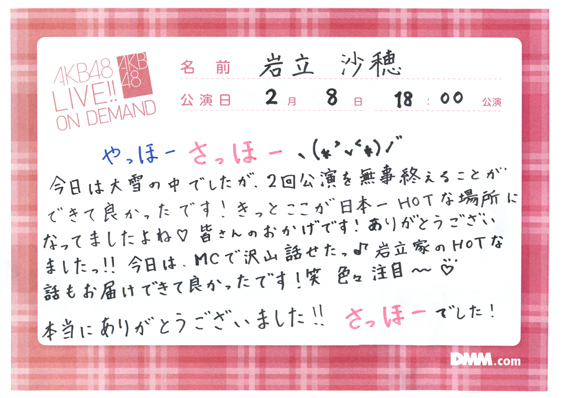 AKB48
LIVE!!
ON DEMAND
AKB
48
名前 岩立 沙穂
公演日 2月 8日 18:00 公演
やっほー さっほー ヽ(*'ᵕ'*)ノ"
今日は大雪の中でしたが、2回公演を無事終えることが
できて良かったです!きっとここが日本一HOTな場所に
なってましたよね♡ 皆さんのおかげです!ありがとうござい
ましたっ!! 今日は、MCで沢山話せたっ♪ 岩立家のHOTな
話もお届けできて良かったです!笑 色々注目〜♡
本当にありがとうございました!! さっほーでした!
DMM.com